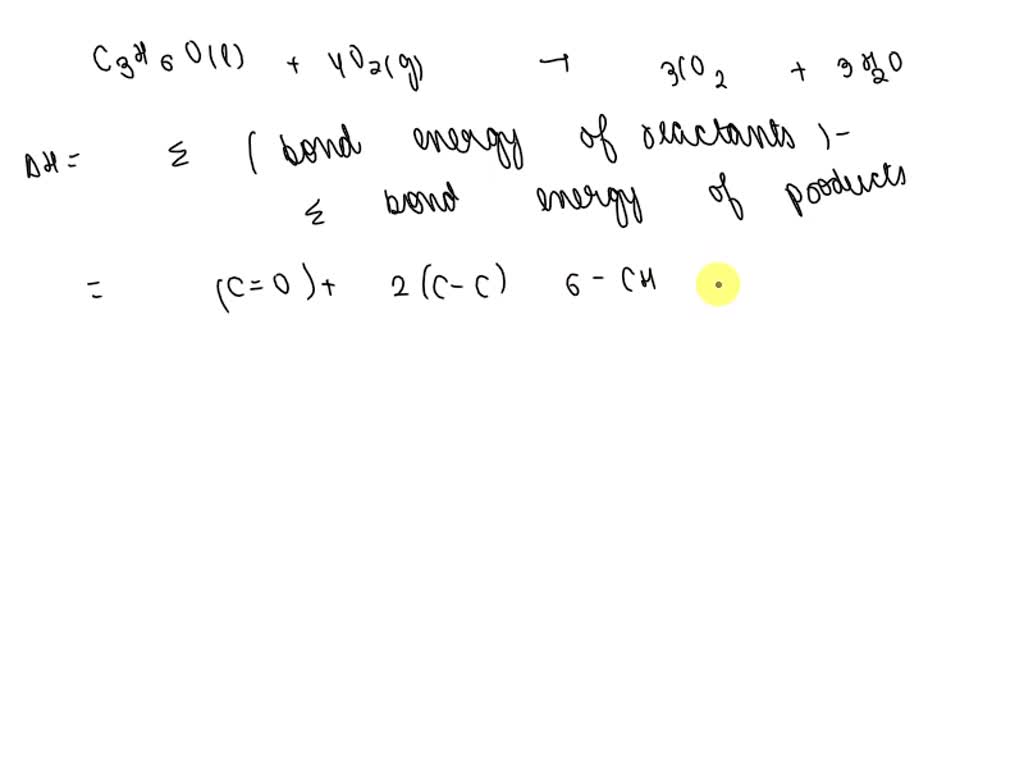 C3H6O(l) + 4O2(g) → 3CO2 + 3H2O
ΔH = Σ (bond energy of reactants) -
Σ bond energy of products
= (C=O) + 2(C-C) 6-CH